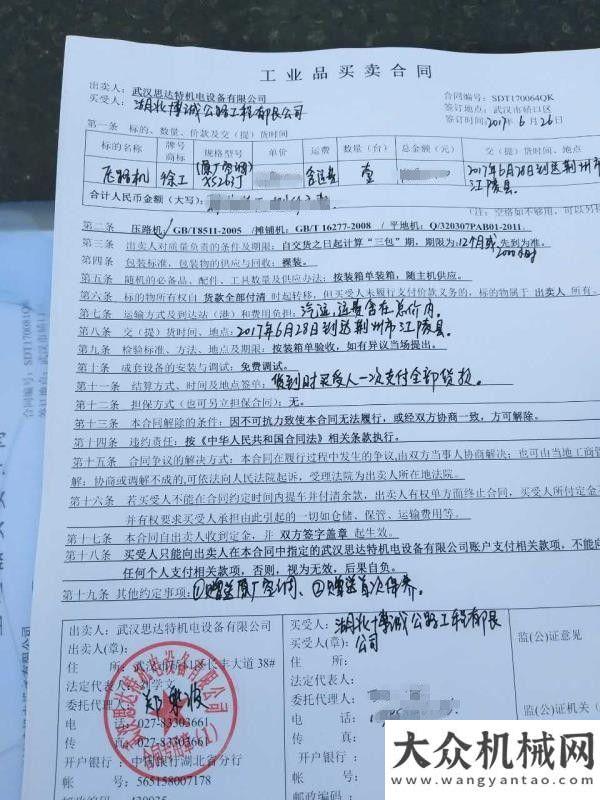 工业品买卖合同
出卖人：武汉思达特机电设备有限公司
买受人：湖北博诚公路工程有限公司
合同编号：SDT170064QK
签订地点：武汉市硚口区
签订时间2017年6月26日
第一条 标的、数量、价款及交（提）货时间
标的名称 牌号商标 规格型号 单价 运费 数量（台） 总金额（元） 交（提）货时间、地点
压路机 徐工 XS263J 含运费 壹 2017年6月28日到达荆州市江陵县
合计人民币金额（大写）：
（注：空格如不够用，可以另
第二条 压路机：GB/T8511-2005 /摊铺机：GB/T 16277-2008 / 平地机：Q/320307PAB01-2011.
第三条 出卖人对质量负责的条件及期限：自交货之日起计算“三包”期；期限为：12个月或2000小时先到为准。
第四条 包装标准、包装物的供应与回收：裸装。
第五条 随机的必备品、配件、工具数量及供应办法：按装箱单装箱，随主机供应。
第六条 标的物所有权自 货款全部付清 时起转移，但买受人未履行支付价款义务的，标的物属于 出卖人 所有。
第七条 运输方式及到达站（港）和费用负担：汽运，运费含在总价内。
第八条 交（提）货时间、地点：2017年6月28日到达荆州市江陵县。
第九条 检验标准、方法、地点及期限：按装箱单验收，如有异议当场提出。
第十条 成套设备的安装与调试：免费调试。
第十一条 结算方式、时间及地点签单：货到时买受人一次支付全部货款。
第十二条 担保方式（也可另立担保合同）：无。
第十三条 本合同解除的条件：因不可抗力致使本合同无法履行，或经双方协商一致，方可解除。
第十四条 违约责任：按《中华人民共和国合同法》相关条款执行。
第十五条 合同争议的解决方式：本合同在履行过程中发生的争议,由双方当事人协商解决；也可由当地工商管
解；协商或调解不成的,可依法向人民法院起诉，受理法院为出卖人所在地法院。
第十六条 若买受人不能在合同约定时间内提车并付清余款，出卖人有权单方面终止合同，买受人所付定金不
并有权要求买受人承担由此引起的一切如仓储、保管、运输费用等。
第十七条 本合同自出卖人收到定金，并 双方签字盖章 起生效。
第十八条 买受人只能向出卖人在本合同中指定的武汉思达特机电设备有限公司账户支付相关款项，不能向
任何个人支付相关款项，否则，视为无效，后果自负。
第十九条 其他约定事项：①赠送原厂空调、②赠送首次保养。
出卖人：武汉思达特机电设备有限公司
出卖人(章)：
住 所：武汉市硚口区长丰大道 38#
法定代表人：学文
委托代理人：
电 话：027-83303661
传 真：027-83303661
开户银行：中国银行湖北省分行
帐 号：565158007178
邮政编码：430035
买受人：湖北博诚公路工程有限公司
买受人(章)：
住 所：
法定代表人：
委托代理人：
电 话：
传 真：
开户银行：
帐 号：
邮政编码：
监(公)证意见
监(公)证机关（
合同编号：SDT170084QK
签订地点：武汉市硚口区
大众机械网
www.wangyantao.com